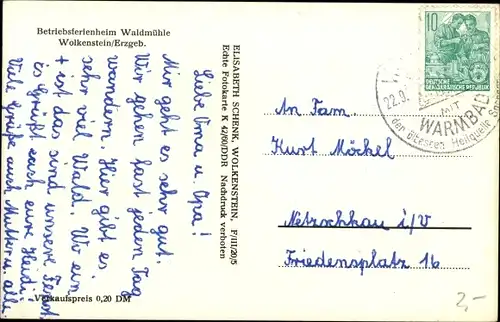 Betriebsferienheim Waldmühle
Wolkenstein/Erzgeb.
Liebe Oma u. Opa!
Mir geht es sehr gut.
Wir gehen fast jeden Tag
wandern. Hier gibt es
sehr viel Wald. Wo ein
+ ist das sind unsere Fenst
Es Grüßt euch eure Heidi
Viele Grüße auch Mutter u. alle
Verkaufspreis 0,20 DM
ELISABETH SCHENK, WOLKENSTEIN, F/III/20/5
Echte Fotokarte K 42/00/DDR Nachdruck verboten
10
DEUTSCHE
DEMOKRATISCHE REPUBLIK
22.9.
MIT
WARMBAD
der ältesten Heilquelle
An Fam.
Kurt Möckel
Netzschkau i/V
Friedensplatz 16
2,-